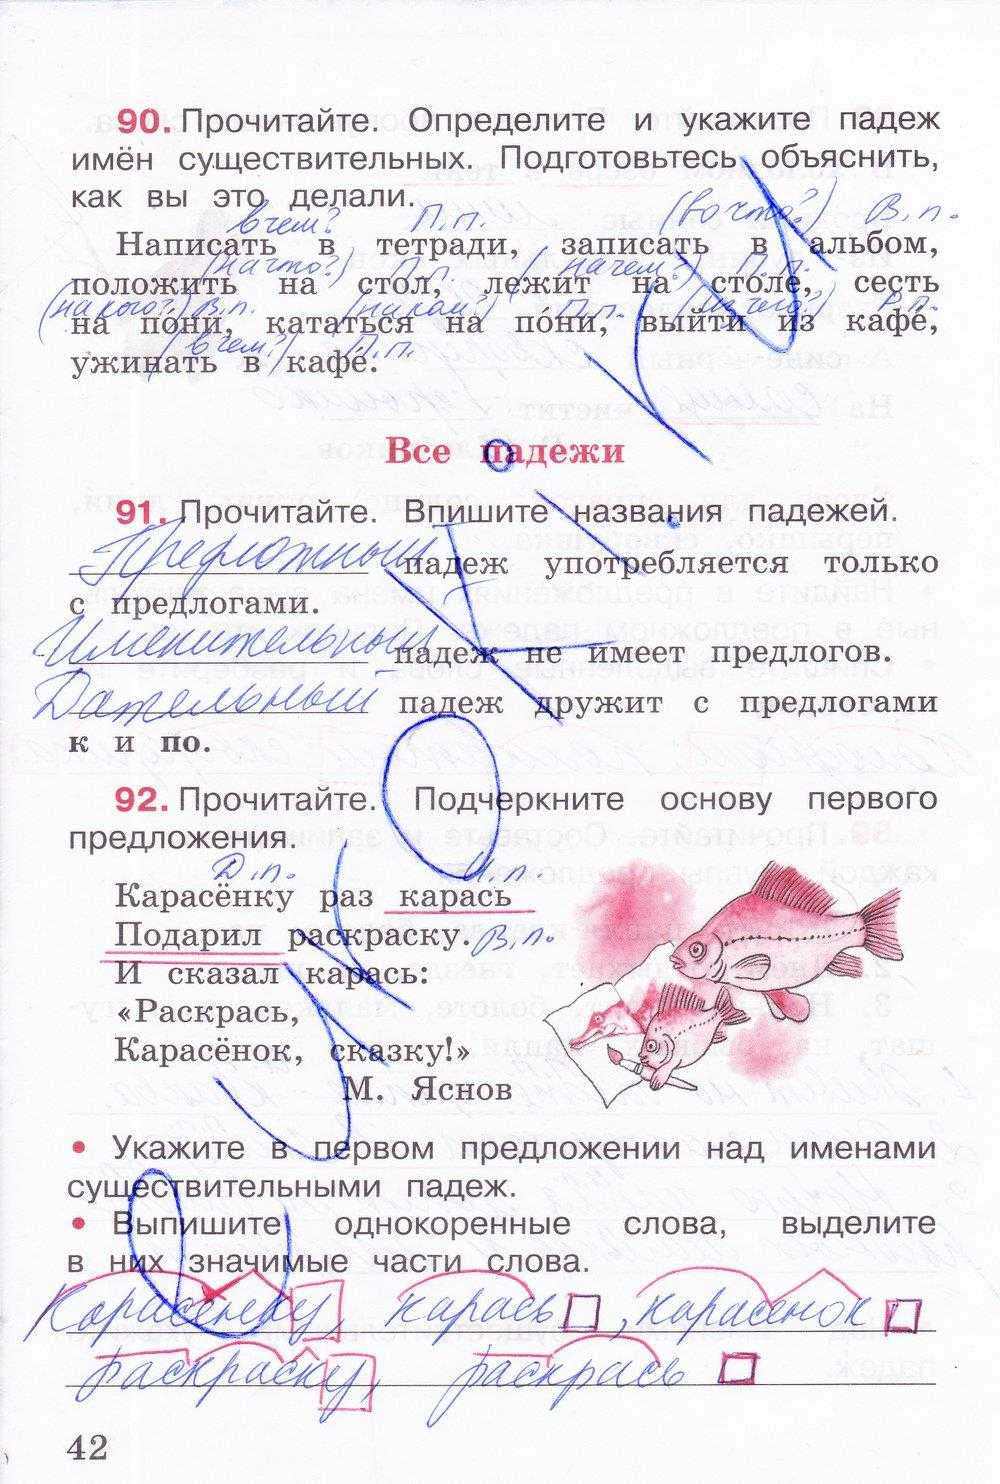 90. Прочитайте. Определите и укажите падеж
имён существительных. Подготовьтесь объяснить,
как вы это делали.
в чем? П.п. (во что?) В.п.
Написать в тетради, записать в альбом,
(на что?) П.п. (на чем?) П.п.
положить на стол, лежит на столе, сесть
(на кого?) В.п. (на ком?) П.п. (из чего?) Р.п.
на по́ни, кататься на по́ни, выйти из кафе́,
(в чем?) П.п.
ужинать в кафе́.
Все падежи
91. Прочитайте. Впишите названия падежей.
Предложный падеж употребляется только
с предлогами.
Именительный падеж не имеет предлогов.
Дательный падеж дружит с предлогами
к и по.
92. Прочитайте. Подчеркните основу первого
предложения.
Д.п. И.п.
Карасёнку раз карась
Подарил раскраску. В.п.
И сказал карась:
«Раскрась,
Карасёнок, сказку!»
М. Яснов
• Укажите в первом предложении над именами
существительными падеж.
• Выпишите однокоренные слова, выделите
в них значимые части слова.
Карасёнку, карась, карасёнок
раскраску, раскрась
42